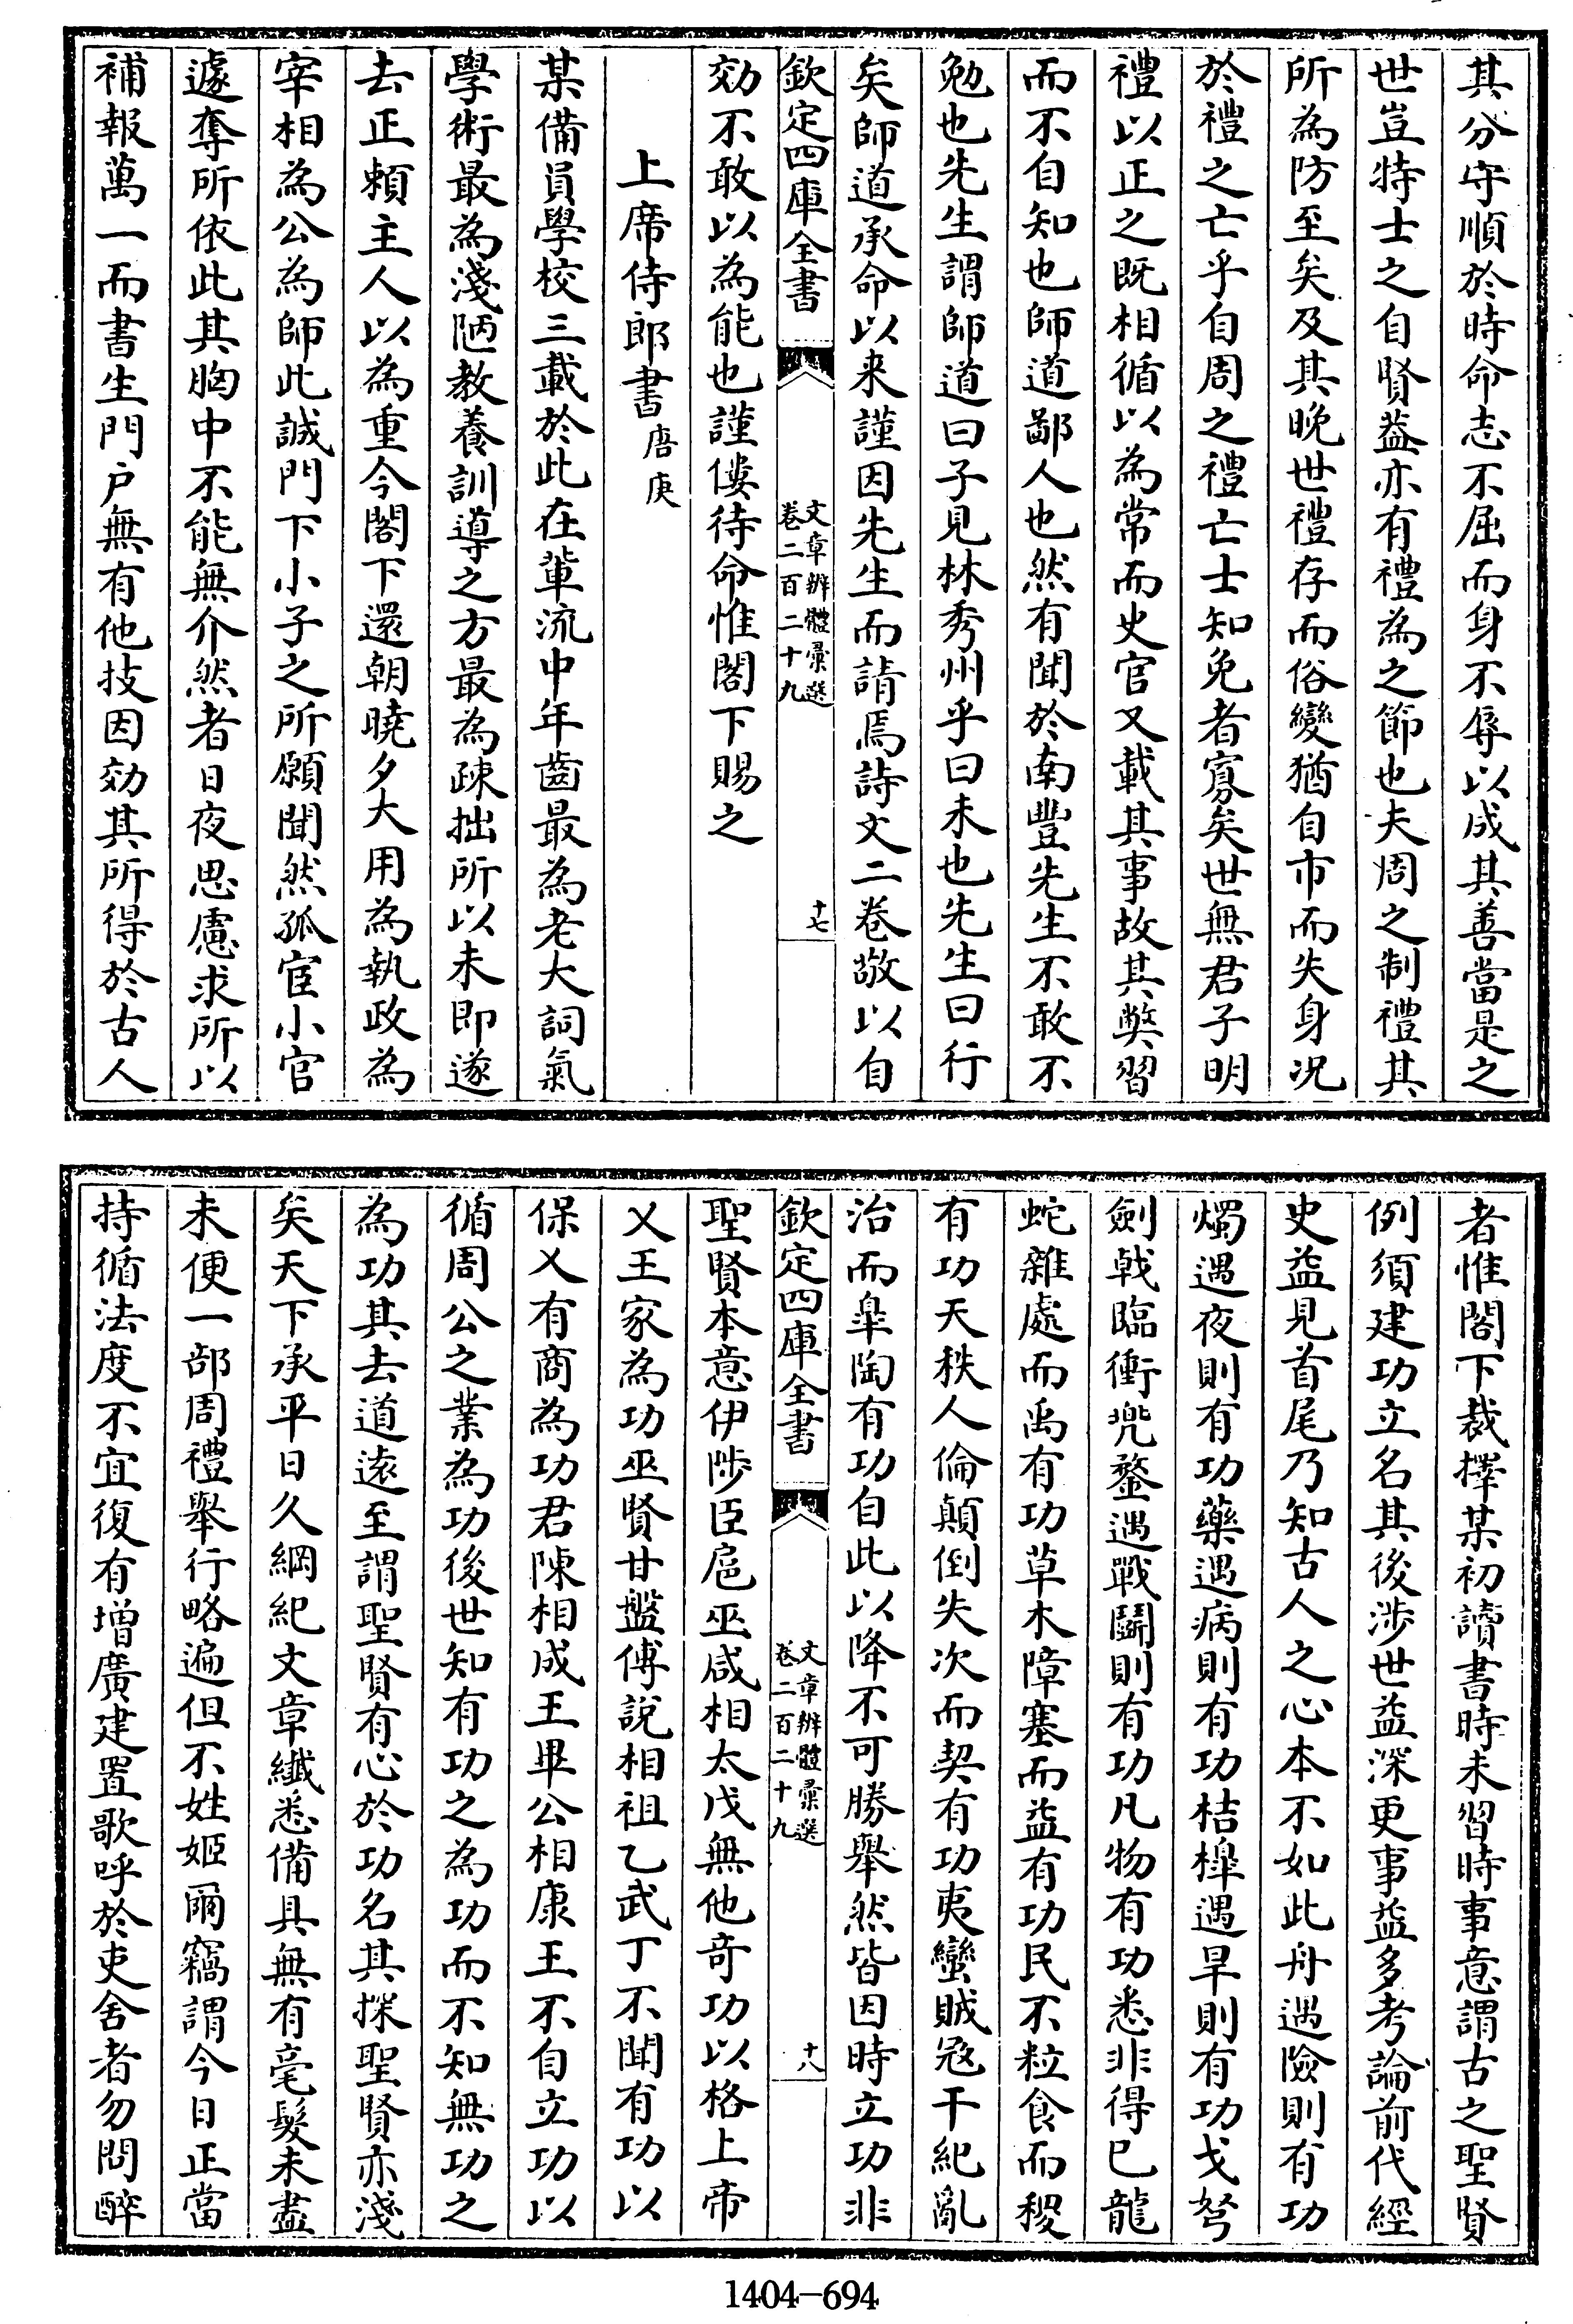 其分守順於時命志不屈而身不辱以成其善當是之
世豈特士之自賢葢亦有禮為之節也夫周之制禮其
所為防至矣及其晚世禮存而俗變猶自市而失身况
於禮之亡乎自周之禮亡士知免者寡矣世無君子明
禮以正之既相循以為常而史官又載其事故其弊習
而不自知也師道鄙人也然有聞於南豐先生不敢不
勉也先生謂師道曰子見林秀州乎曰未也先生曰行
矣師道承命以来謹因先生而請焉詩文二卷敬以自
欽定四庫全書
文章辨體彚選
卷二百二十九
十七
効不敢以為能也謹僂待命惟閣下賜之
上席侍郎書唐庚
某備員學校三載於此在輩流中年齒最為老大詞氣
學術最為淺陋教養訓導之方最為疎拙所以未即遂
去正頼主人以為重今閣下還朝曉夕大用為執政為
宰相為公為師此誠門下小子之所願聞然孤宦小官
遽奪所依此其胸中不能無介然者日夜思慮求所以
補報萬一而書生門户無有他技因効其所得於古人
者惟閣下裁擇某初讀書時未習時事意謂古之聖賢
例須建功立名其後渉世益深更事益多考論前代經
史益見首尾乃知古人之心本不如此舟遇險則有功
燭遇夜則有功藥遇病則有功桔槔遇旱則有功戈弩
劍戟臨衝兠鍪遇戰鬭則有功凡物有功悉非得已龍
蛇雜處而禹有功草木障塞而益有功民不粒食而稷
有功天秩人倫顛倒失次而契有功夷蠻賊冦干紀亂
治而臯陶有功自此以降不可勝舉然皆因時立功非
欽定四庫全書
文章辨體彚選
卷二百二十九
十八
聖賢本意伊陟臣扈巫咸相太戊無他奇功以格上帝
乂王家為功巫賢甘盤傅說相祖乙武丁不聞有功以
保乂有商為功君陳相成王畢公相康王不自立功以
循周公之業為功後世知有功之為功而不知無功之
為功其去道逺至謂聖賢有心於功名其探聖賢亦淺
矣天下承平日久綱紀文章纎悉備具無有毫髮未盡
未便一部周禮舉行略遍但不姓姬爾竊謂今日正當
持循法度不宜復有增廣建置歌呼於吏舍者勿問醉
1404-694